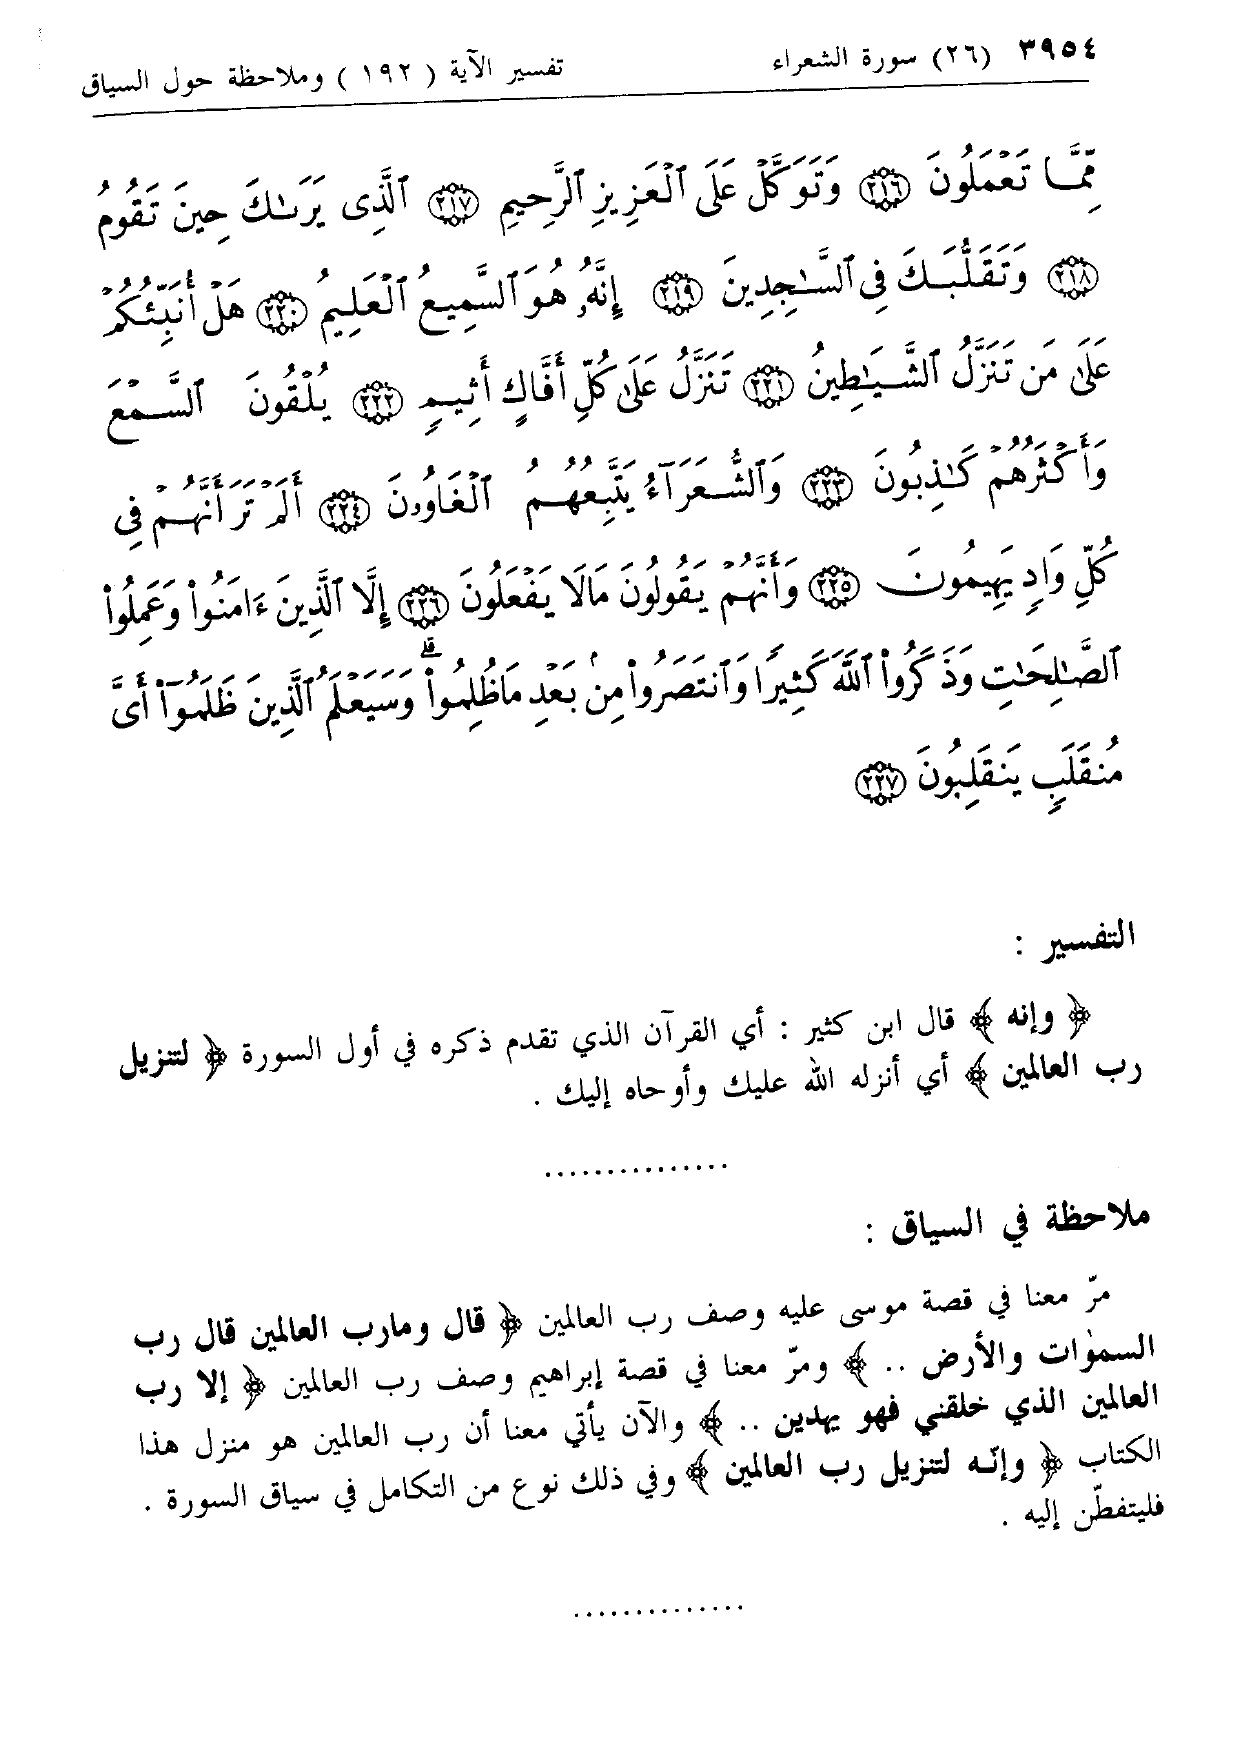 ٣٩٥٤ (٢٦) سورة الشعراء تفسير الآية ( ١٩٢ ) وملاحظة حول السياق
مِّمَّا تَعْمَلُونَ ٢١٦ وَتَوَكَّلْ عَلَى ٱلْعَزِيزِ ٱلرَّحِيمِ ٢١٧ ٱلَّذِى يَرَىٰكَ حِينَ تَقُومُ
٢١٨ وَتَقَلُّبَكَ فِى ٱلسَّـٰجِدِينَ ٢١٩ إِنَّهُۥ هُوَ ٱلسَّمِيعُ ٱلْعَلِيمُ ٢٢٠ هَلْ أُنَبِّئُكُمْ
عَلَىٰ مَن تَنَزَّلُ ٱلشَّيَـٰطِينُ ٢٢١ تَنَزَّلُ عَلَىٰ كُلِّ أَفَّاكٍ أَثِيمٍ ٢٢٢ يُلْقُونَ ٱلسَّمْعَ
وَأَكْثَرُهُمْ كَـٰذِبُونَ ٢٢٣ وَٱلشُّعَرَآءُ يَتَّبِعُهُمُ ٱلْغَاوُۥنَ ٢٢٤ أَلَمْ تَرَ أَنَّهُمْ فِى
كُلِّ وَادٍ يَهِيمُونَ ٢٢٥ وَأَنَّهُمْ يَقُولُونَ مَالَا يَفْعَلُونَ ٢٢٦ إِلَّا ٱلَّذِينَ ءَامَنُوا۟ وَعَمِلُوا۟
ٱلصَّـٰلِحَـٰتِ وَذَكَرُوا۟ ٱللَّهَ كَثِيرًا وَٱنتَصَرُوا۟ مِنۢ بَعْدِ مَاظُلِمُوا۟ ۗ وَسَيَعْلَمُ ٱلَّذِينَ ظَلَمُوٓا۟ أَىَّ
مُنقَلَبٍ يَنقَلِبُونَ ٢٢٧
التفسير :
﴿ وإنه ﴾ قال ابن كثير : أي القرآن الذي تقدم ذكره في أول السورة ﴿ لتنزيل
رب العالمين ﴾ أي أنزله الله عليك وأوحاه إليك .
...............
ملاحظة في السياق :
مرّ معنا في قصة موسى عليه وصف رب العالمين ﴿ قال ومارب العالمين قال رب
السمٰوات والأرض .. ﴾ ومرّ معنا في قصة إبراهيم وصف رب العالمين ﴿ إلا رب
العالمين الذي خلقني فهو يهدين .. ﴾ والآن يأتي معنا أن رب العالمين هو منزل هذا
الكتاب ﴿ وإنّه لتنزيل رب العالمين ﴾ وفي ذلك نوع من التكامل في سياق السورة .
فليتفطّن إليه .
..............